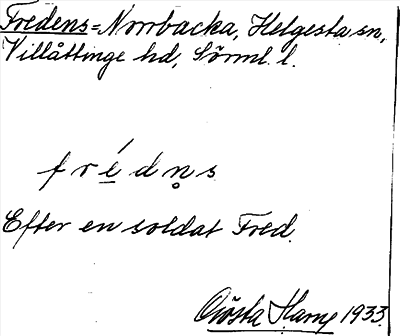 Fredens=Norrbacka, Helgesta sn,
Villåttinge hd, Sörml. l.
f r é d n̥ s
Efter en soldat Fred.
Gösta Harne 1933.